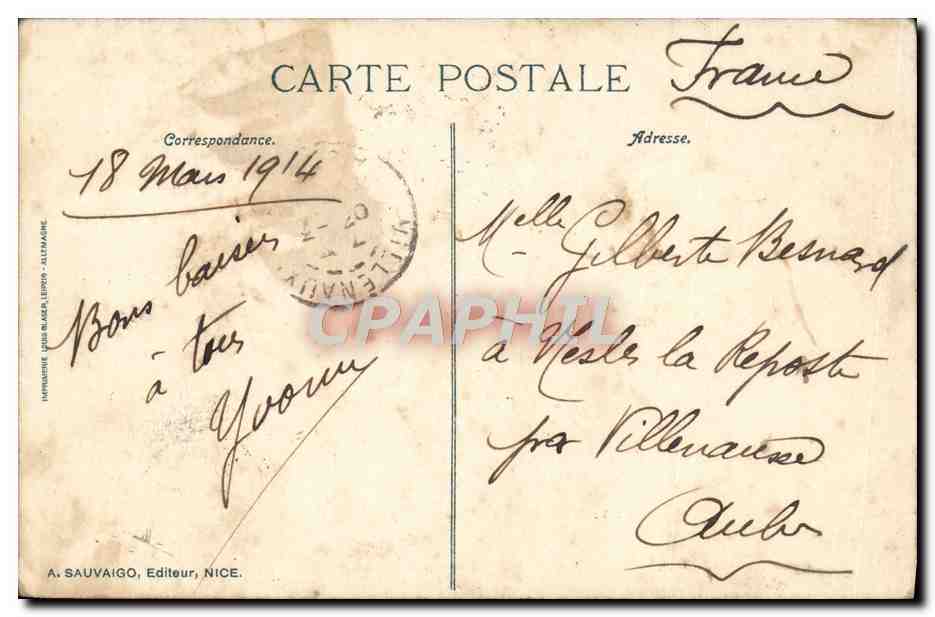 CARTE POSTALE
France
Correspondance.
Adresse.
18 Mars 1914
Bons baisers
à tous
Yvonne
VILLENAUX
Melle Gilberte Besnard
à Nesles la Reposte
par Villenauxe
Aube
CPAPHIL
IMPRIMERIE LOUIS GLASER, LEIPZIG - ALLEMAGNE.
A. SAUVAIGO, Editeur, NICE.